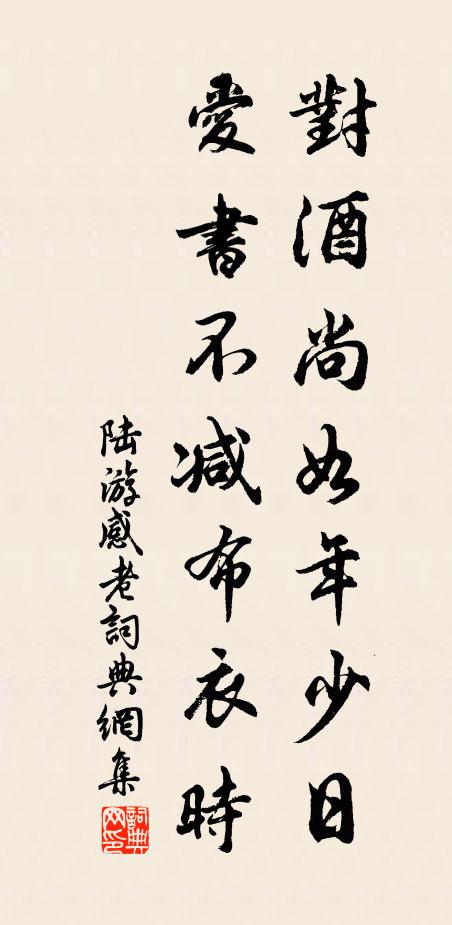 對酒尚如年少日
愛書不減布衣時
陸游感老詞典網集
詞典網印